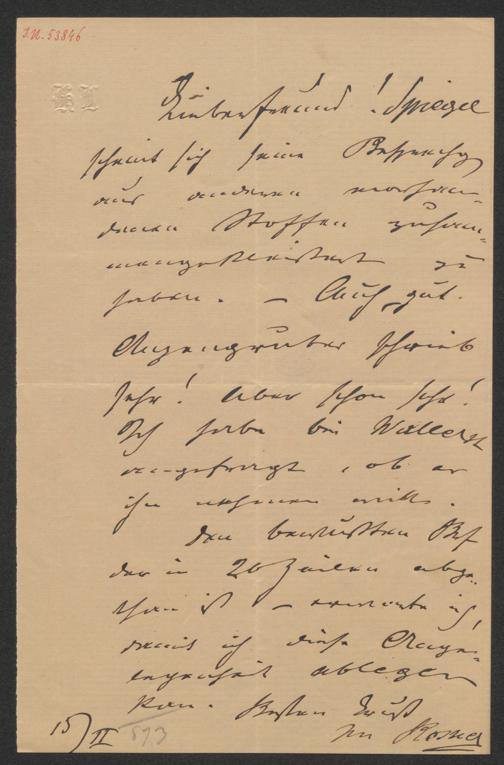 I.N. 53846
KL
Lieber Freund! Spiegel
scheint sich seine Besprechg
aus anderen vorhan-
denen Stoffen zusam-
mengekleistert zu
haben. – Auch gut.
Anzengruber schrieb
sehr! Aber schon sehr!
Ich habe bei
angefragt, ob er
ihn nehmen will.
Den bewußten
der in 20 Zeilen abge-
than ist – erwarte ich,
damit ich diese Ange-
legenheit ablegen
kan. Besten Gruß
Ihr Rosner
15/II 893